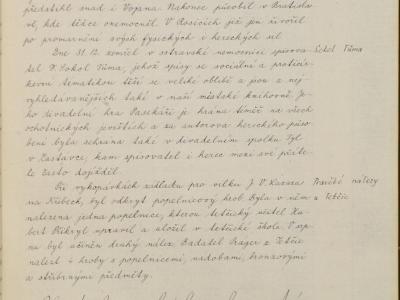 předstihl snad i Vojana. Nakonec působil v Bratisla-
vě, kde těžce onemocněl. V Rosicích již jen živořil
po promarnění svých fysických i hereckých sil
Dne 31.12. zemřel v ostravské nemocnici spisova-
Sokol Tůma
tel F. Sokol Tůma, jehož spisy se sociální a protiče-
skou tematikou těší se veliké oblibě a jsou z nej-
vyhledávanějších také v naší městské knihovně. Je-
ho divadelní hra Pasekáři je hrána téměř na všech
ochotnických jevištích a za autorova hereckého půso-
bení byla sehrána také v divadelním spolku Tyl
v Zastávce, kam spisovatel i herec mezi své přáte-
le často dojížděl.
Při vykopávkách základů pro vilku J. V.
Pravěké nálezy
na Kübech, byl odkryt popelnicový hrob. Byla v něm
z Tetčic
nalezena jedna popelnice, kterou tetčický učitel Hu-
bert Přikryl upravil a uložil v tetčické škole. V srp-
nu byl učiněn druhý nález. Badatel z Tetčic
nalezl 4 hroby s popelnicemi, nádobami, bronzovými
a stříbrnými předměty.